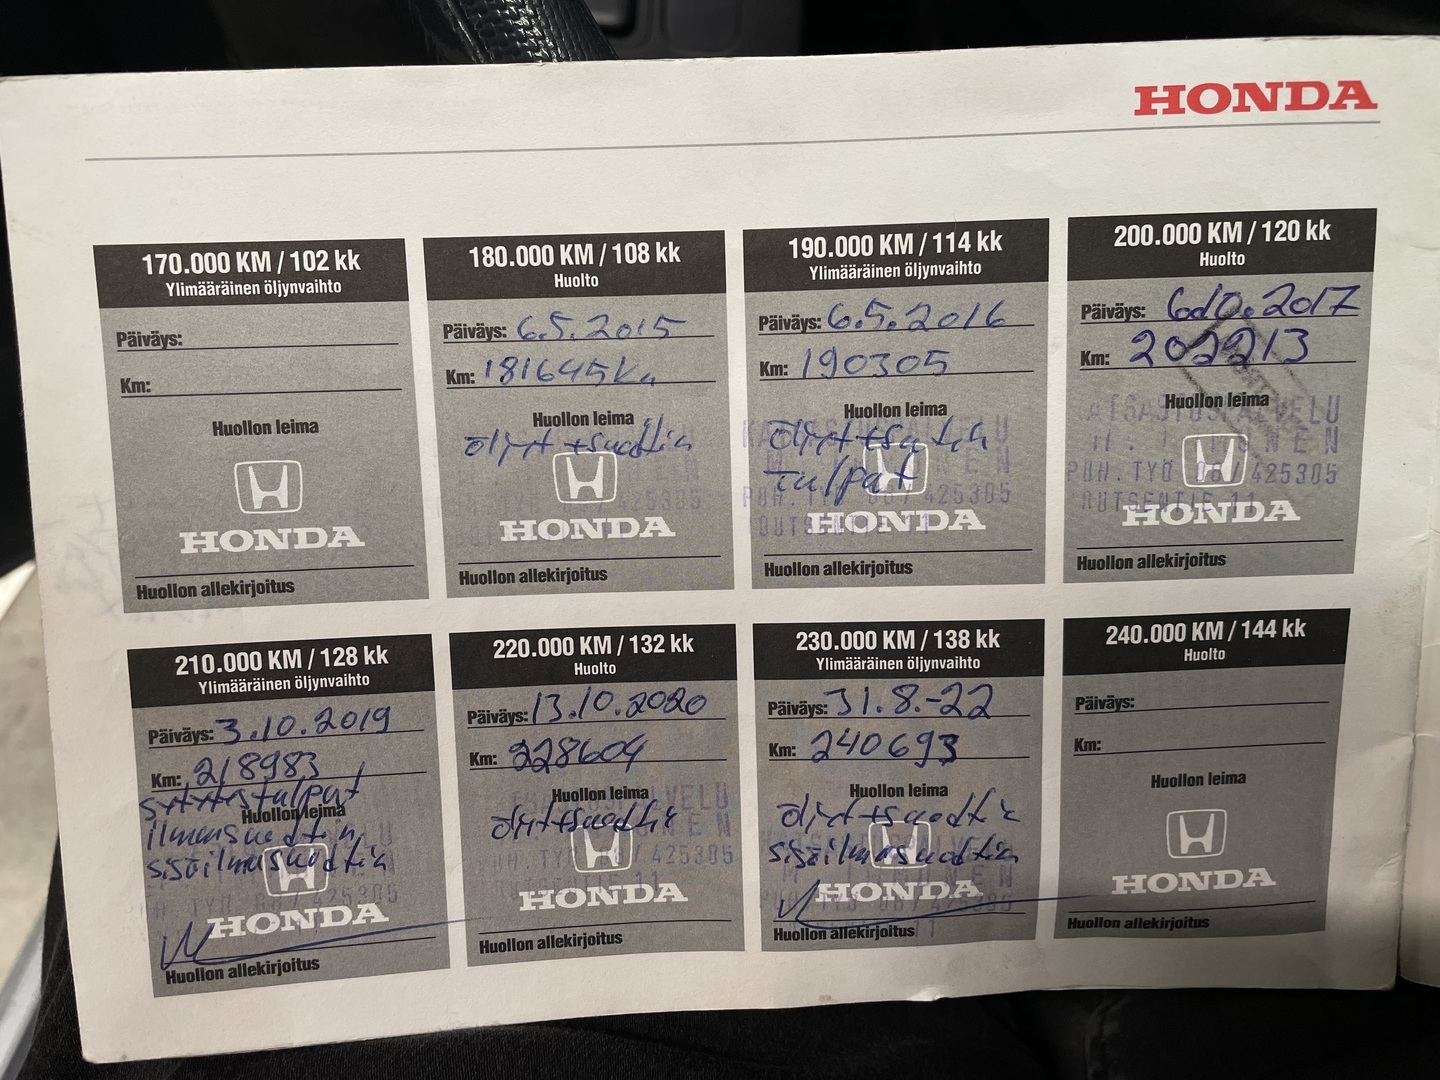 HONDA
170.000 KM / 102 kk
Ylimääräinen öljynvaihto
Päiväys:
Km:
Huollon leima
HONDA
Huollon allekirjoitus
180.000 KM / 108 kk
Huolto
Päiväys: 6.5.2015
Km: 181645 Km
Huollon leima
öljyt + suodatin
HONDA
Huollon allekirjoitus
190.000 KM / 114 kk
Ylimääräinen öljynvaihto
Päiväys: 6.5.2016
Km: 190305
Huollon leima
tulpat
PUH. TYÖ 08/425305
HONDA
Huollon allekirjoitus
200.000 KM / 120 kk
Huolto
Päiväys: 6.10.2017
Km: 202213
Huollon leima
KATSASTUSPALVELU
PUH. TYÖ 08/425305
HONDA
Huollon allekirjoitus
210.000 KM / 128 kk
Ylimääräinen öljynvaihto
Päiväys: 3.10.2019
Km: 218983
sytytystulpat
Huollon leima
ilmansuodatin
sisäilmasuodatin
HONDA
Huollon allekirjoitus
220.000 KM / 132 kk
Huolto
Päiväys: 13.10.2020
Km: 228604
Huollon leima
PUH. TYÖ 08/425305
HONDA
Huollon allekirjoitus
230.000 KM / 138 kk
Ylimääräinen öljynvaihto
Päiväys: 31.8.-22
Km: 240693
Huollon leima
sisäilmasuodatin
HONDA
Huollon allekirjoitus
240.000 KM / 144 kk
Huolto
Päiväys:
Km:
Huollon leima
HONDA
Huollon allekirjoitus